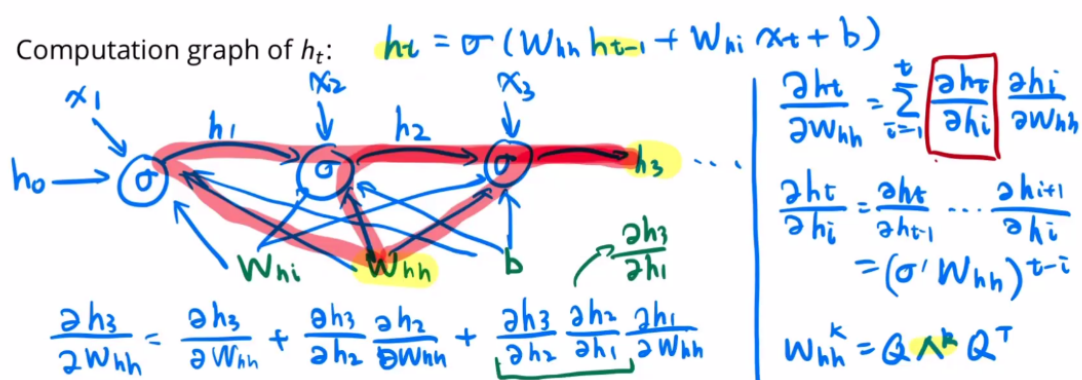 Computation graph of hₜ: hₜ = σ (Wₕₕ hₜ₋₁ + Wₕᵢ xₜ + b)
x₁ x₂ x₃
h₁ h₂
h₀ σ σ σ h₃ ...
Wₕᵢ Wₕₕ b ∂h₃/∂h₁
∂h₃/∂Wₕₕ = ∂h₃/∂Wₕₕ + ∂h₃/∂h₂ ∂h₂/∂Wₕₕ + ∂h₃/∂h₂ ∂h₂/∂h₁ ∂h₁/∂Wₕₕ
∂hₜ/∂Wₕₕ = Σᵢ₌₁ᵗ ∂hₜ/∂hᵢ ∂hᵢ/∂Wₕₕ
∂hₜ/∂hᵢ = ∂hₜ/∂hₜ₋₁ ... ∂hᵢ₊₁/∂hᵢ
= (σ' Wₕₕ)ᵗ⁻ⁱ
Wₕₕᵏ = Q Λᵏ Qᵀ